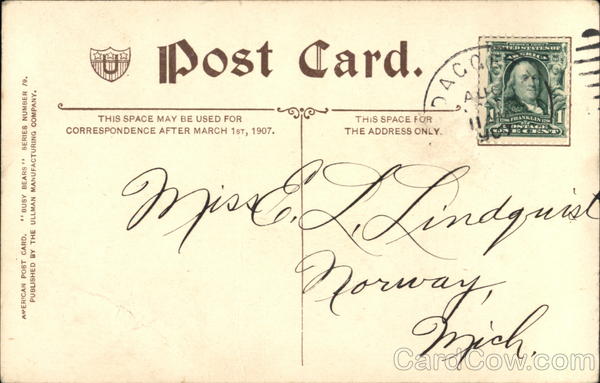 Post Card.
THIS SPACE MAY BE USED FOR
CORRESPONDENCE AFTER MARCH 1ST, 1907.
THIS SPACE FOR
THE ADDRESS ONLY.
UNITED STATES OF
AMERICA
FRANKLIN
POSTAGE
ONE CENT
1 1
DAGGE
AU
AMERICAN POST CARD. "BUSY BEARS" SERIES NUMBER 79.
PUBLISHED BY THE ULLMAN MANUFACTURING COMPANY.
Miss E. L. Lindquist
Norway,
Mich.
CardCow.com